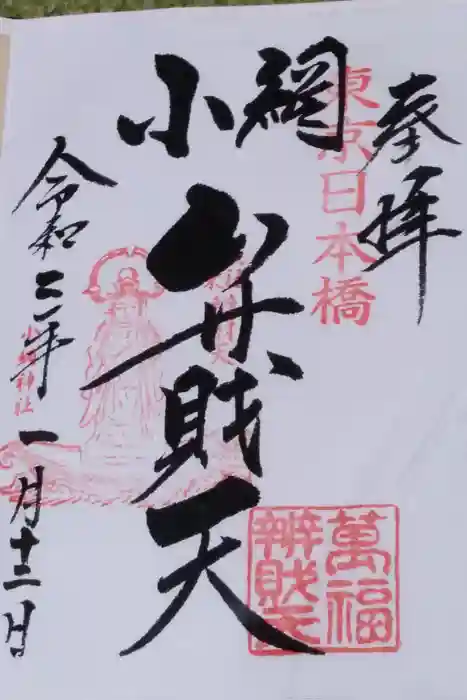 奉拝
東京日本橋
小網
弁財天
令和二年一月十二日
小網神社
萬福
辨財天